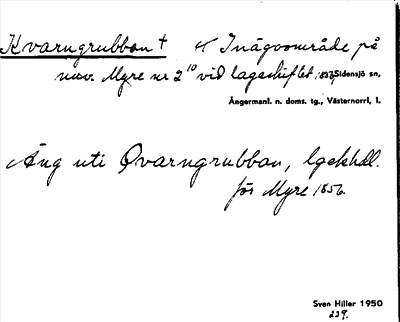 Kvarngrubban † Inägoområde på
nuv. Myre nr 2¹⁰ vid lagaskiftet 1857. Sidensjö sn.
Ångermanl. n. doms. tg., Västernorrl. l.
Äng uti Qvarngrubban, lgckhdl.
för Myre 1856.
Sven Hiller 1950
239.